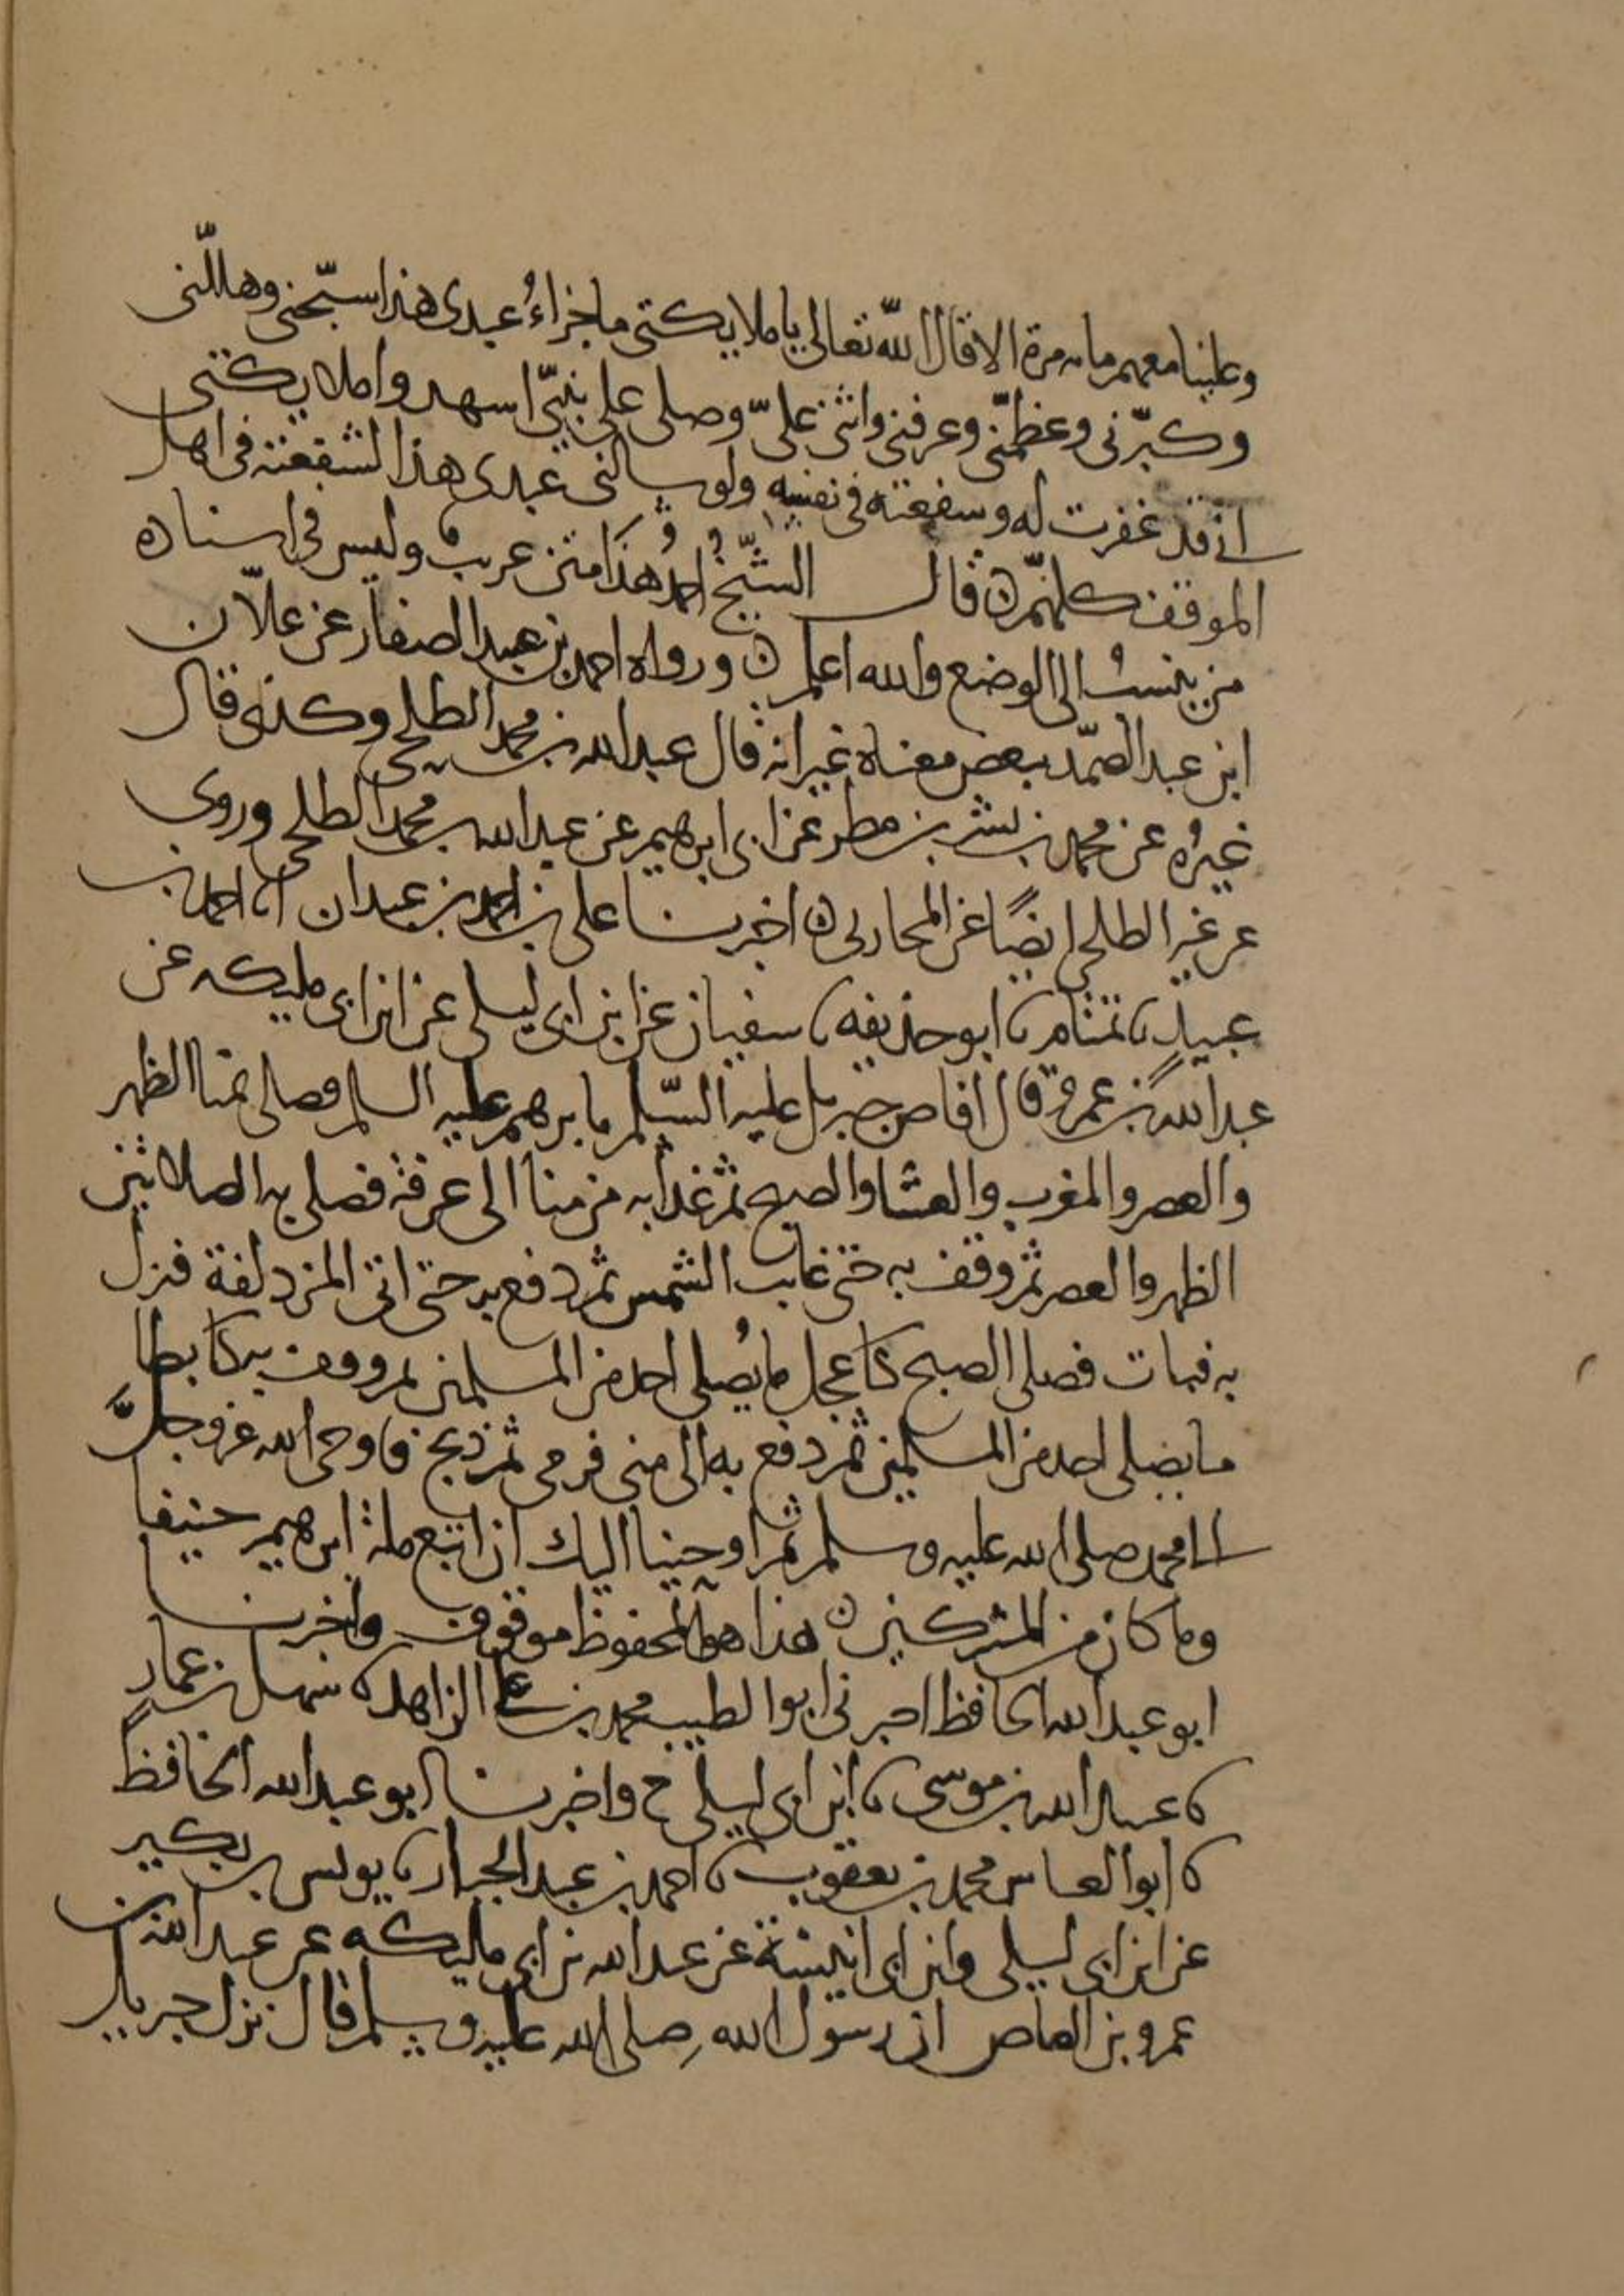 وعلينا معهم مايه مرة الا قال الله تعالى يا ملايكتي ما جزاءُ عبدى هذا سبّحنى وهللّنى
وكبّرنى وعظمّنى وعرفنى واثنى علىّ وصلى على نبيّى اشهدوا ملايكتى
انى قد غفرت له وشفعته فى نفسه ولو سالنى عبدى هذا لشفعته فى اهل
الموقف كلهم ن قال الشيخ احمد هذا متن غريب وليس فى اسناده
من ينسب الى الوضع والله اعلم ن ورواه احمد بن عبيد الصفار عن علّان
ابن عبد الصمّد ببعض معناه غير انه قال عبد الله بن محمد الطلحى وكذلك قال
غيرُه عن محمد بن بشر بن مطر عن ابى ابرهيم عن عبد الله بن محمد الطلحى وروى
عن غير الطلحى ايضًا عن المحاربى ن اخبرنا على بن احمد بن عبدان انا احمد بن
عبيد نا تمتام نا ابو حذيفه نا سفيان عن ابن ابى ليلى عن ابن ابى مليكه عن
عبد الله بن عمرو قال افاض جبريل عليه السّلم بابرهيم عليه السلم فصلى بمنا الظهر
والعصر والمغرب والعشا والصبح ثم غدا به من منا الى عرفة فصلى به الصلاتين
الظهر والعصر ثم وقف به حتى غابت الشمس ثم دفع به حتى اتى المزدلفة فنزل
به فبات فصلى الصبح كاعجل ما يُصلى احد من المسلمين ثم وقف به كابطا
ما يصلى احد من المسلمين ثم دفع به الى منى فرمى ثم ذبح فاوحى الله عز وجلَّ
الى محمد صلى الله عليه وسلم ثم اوحينا اليك ان اتبع ملة ابرهيم حنيفا
وما كان من المشركين ن هذا هو المحفوظ موقوف واخبرنا
ابو عبد الله الحافظ اخبرنى ابو الطيب محمد بن على الزاهد نا سهل بن عمار
نا عبيد الله بن موسى نا ابن ابى ليلى ح واخبرنا ابو عبد الله الحافظ
نا ابو العباس محمد بن يعقوب نا احمد بن عبد الجبار نا يونس بن بكير
عن ابن ابى ليلى وابن ابى انيسة عن عبد الله بن ابى مليكه عن عبد الله بن
عمرو بن العاص ان رسول الله صلى الله عليه وسلم قال نزل جبريل